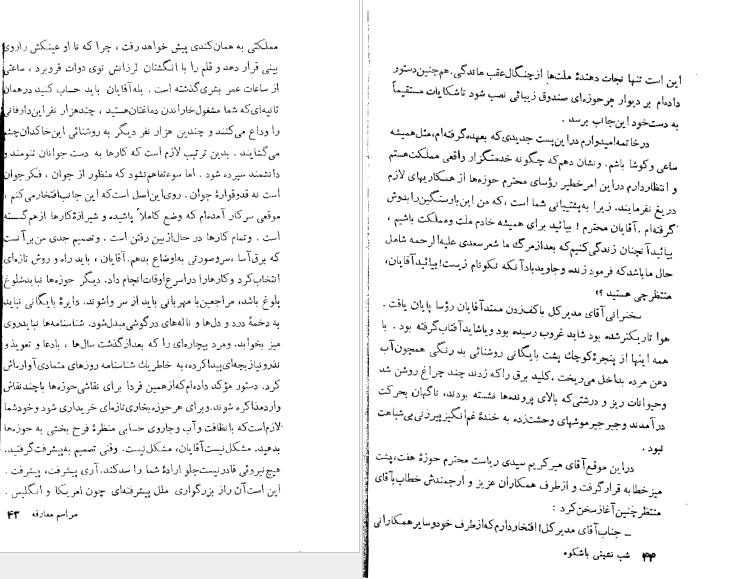 مملکتی به همان‌کندی پیش خواهد رفت ، چرا که تا او عینکش را روی
بینی قرار دهد و قلم را با انگشتان لرزانش توی دوات فرو برد ، ساعتی
از ساعات عمر بشری گذشته است . بله آقایان باید حساب کنید در همان
ثانیه‌ای که شما مشغول خاراندن دماغتان هستید ، چند هزار نفر این دار فانی
را وداع می‌کنند و چندین هزار نفر دیگر به روشنائی این خاکدان چشم
می‌گشایند . بدین ترتیب لازم است که کارها به دست جوانان تنومند و
دانشمند سپرده شود . اما سوءتفاهم نشود که منظور از جوان ، فکر جوان
است نه قد و قوارهٔ جوان . روی این اصل است که این جانب افتخار می‌کنم ،
موقعی سر کار آمده‌ام که وضع کاملاً پاشیده و شیرازهٔ کارها از هم گسسته
است . و تمام کارها در حال از بین رفتن است . و تصمیم جدی من بر آنست
که برق‌آسا ، سر و صورتی به اوضاع بدهم. آقایان ، باید راه و روش تازه‌ای
انتخاب کرد و کارها را در اسرع اوقات انجام داد. دیگر حوزه‌ها نباید شلوغ
پلوغ باشد، مراجعین با مهربانی باید از سر وا شوند. دایرهٔ بایگانی نباید
به دخمهٔ درد و دل‌ها و ناله‌های در گوشی مبدل شود. شناسنامه‌ها نباید روی
میز بخوابد. و مرد بیچاره‌ای را که بعد از گذشت سال‌ها ، با دعا و تعویذ و
نذر و نیاز بچه‌ای پیدا کرده، به خاطر یك شناسنامه روزهای متمادی آواره‌اش
کرد. دستور مؤکد داده‌ام که از همین فردا برای نقاشی حوزه‌ها با چند نقاش
وارد مذاکره شوند. و برای هر حوزه بخاری تازه‌ای خریداری شود و خود شما
لازم است که با نظافت و آب و جاروی حسابی منظرهٔ فرح بخشی به حوزه‌ها
بدهید. مشکل نیست آقایان، مشکل نیست. وقتی تصمیم به پیشرفت گرفتید.
هیچ نیروئی قادر نیست جلو ارادهٔ شما را سد کند. آری پیشرفت، پیشرفت .
این است آن راز بزرگواری ملل پیشرفته‌ای چون امریکا و انگلیس .
مراسم معارفه ۴۳
این است تنها نجات دهندهٔ ملت‌ها از چنگال عقب ماندگی. هم‌چنین دستور
داده‌ام بر دیوار هر حوزه‌ای صندوق زیبائی نصب شود تا شکایات مستقیماً
به دست خود این جانب برسد .
در خاتمه امیدوارم در این پست جدیدی که بعهده گرفته‌ام، مثل همیشه
ساعی و کوشا باشم. و نشان دهم که چگونه خدمتگزار واقعی مملکت هستم
و انتظار دارم در این امر خطیر رؤسای محترم حوزه‌ها از همکاریهای لازم
دریغ نفرمایند. زیرا به پشتیبانی شما است ، که من این بار سنگین را بدوش
گرفته‌ام . آقایان محترم ! بیائید برای همیشه خادم ملت و مملکت باشیم ،
بیائید آنچنان زندگی کنیم که بعد از مرگ ما شعر سعدی علیه الرحمه شامل
حال ما باشد که فرمود زنده و جاوید باد آنکه نکونام زیست! بیائید آقایان،
منتظر چی هستید ؟»
سخنرانی آقای مدیر کل با کف زدن ممتد آقایان رؤسا پایان یافت .
هوا تاریکتر شده بود شاید غروب رسیده بود و یا شاید آفتاب گرفته بود . با
همه اینها از پنجرهٔ کوچك پشت بایگانی روشنائی بد رنگی همچون آب
دهن مرده بداخل می‌ریخت . کلید برق را که زدند چند چراغ روشن شد
و حیوانات ریز و درشتی که بالای پرونده‌ها نشسته بودند، ناگهان بحرکت
در آمدند و جیرجیر موشهای وحشت زده به خندهٔ غم انگیز پیرزنی بی‌شباهت
نبود .
در این موقع آقای میر کریم سیدی ریاست محترم حوزهٔ هفت، پشت
میز خطابه قرار گرفت و از طرف همکاران عزیز و ارجمندش خطاب به آقای
منتظر چنین آغاز سخن کرد :
ـ جناب آقای مدیر کل! افتخار دارم که از طرف خود و سایر همکارانی
۴۴ شب نشینی باشکوه